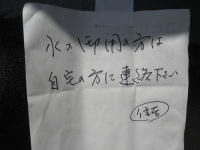 水の御用の方は
自宅の方に連絡下さい
住吉